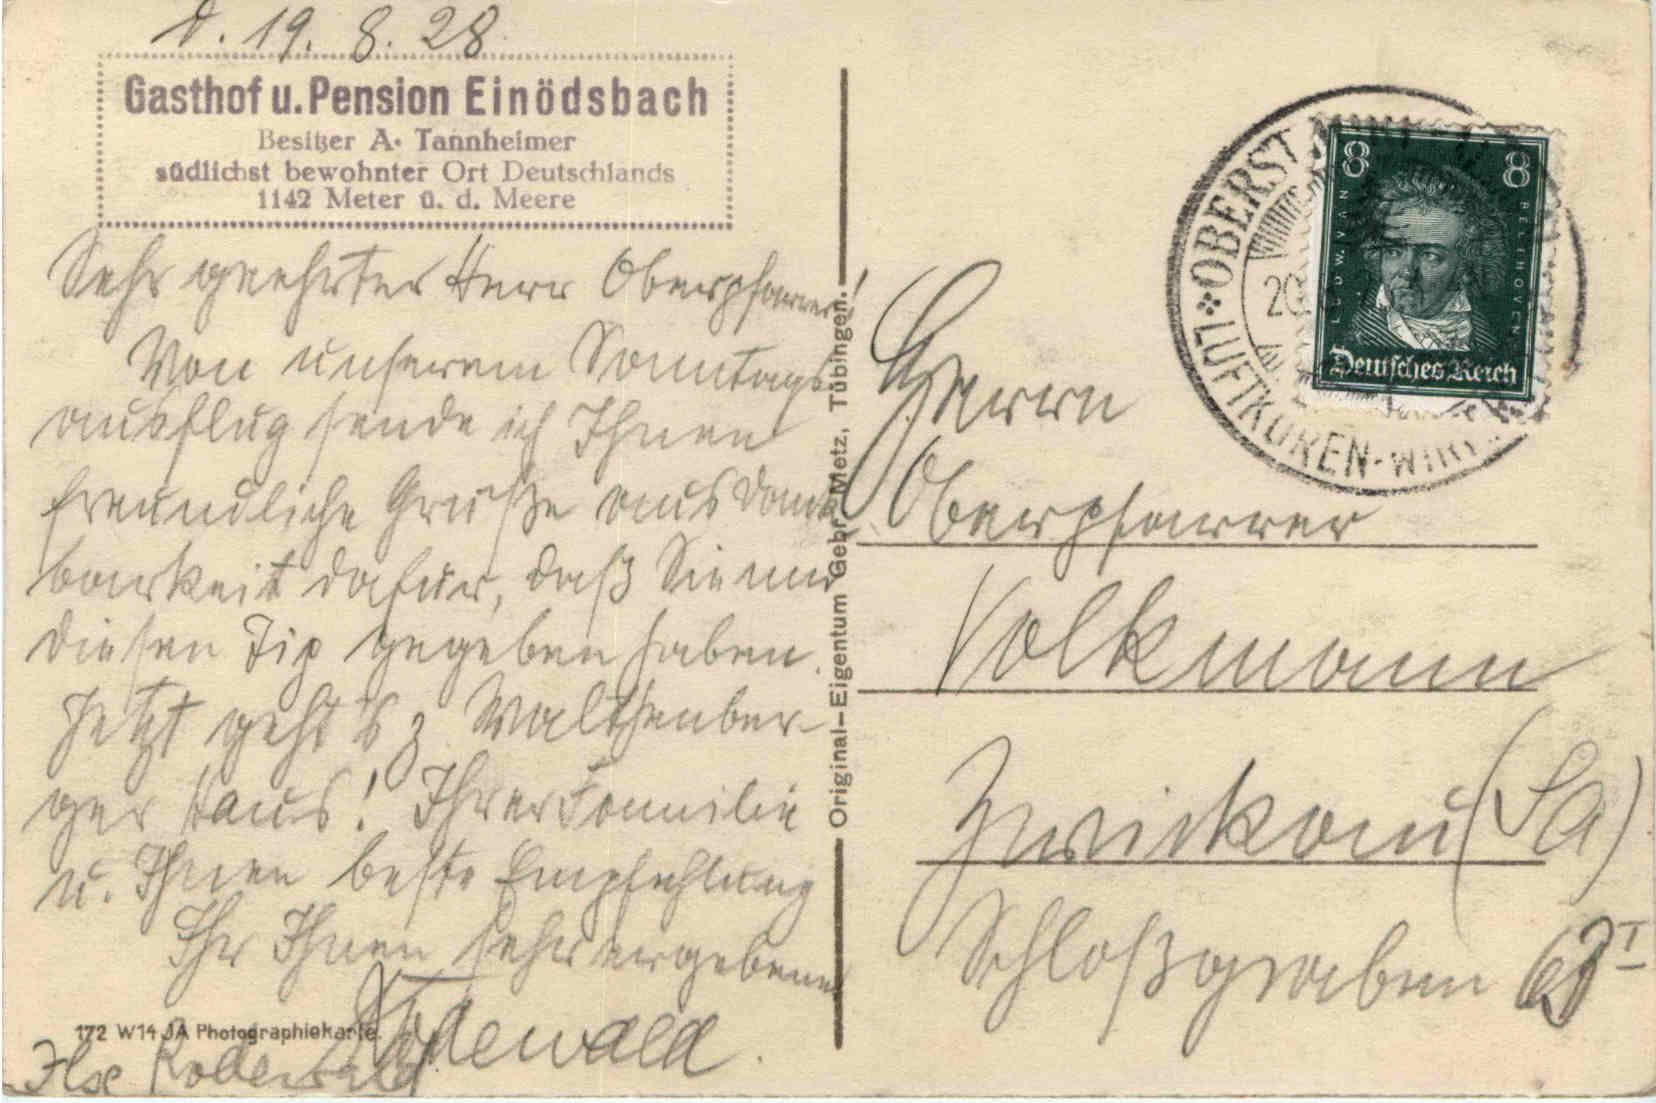 d. 19. 8. 28.
Gasthof u. Pension Einödsbach
Besitzer A. Tannheimer
südlichst bewohnter Ort Deutschlands
1142 Meter ü. d. Meere
Sehr geehrter Herr Oberpfarrer!
Von unserem Sonntags
ausflug sende ich Ihnen
freundliche Grüße aus Dank
barkeit dafür, daß Sie mir
diesen Tip gegeben haben.
Jetzt geht's z. Waltenber-
ger Haus! Ihrer Familie
u. Ihnen beste Empfehlung
Ihr Ihnen sehr ergebener
Rodewald.
Ilse Rodewald
172 W14 JA Photographiekarte.
Original-Eigentum Gebr. Metz, Tübingen.
OBERST
LUFTKUREN-WIN
20
8 8
LUDW. VAN BEETHOVEN
Deutsches Reich
Herrn
Oberpfarrer
Volkmann
Zwickau (Sa)
Schloßgraben I